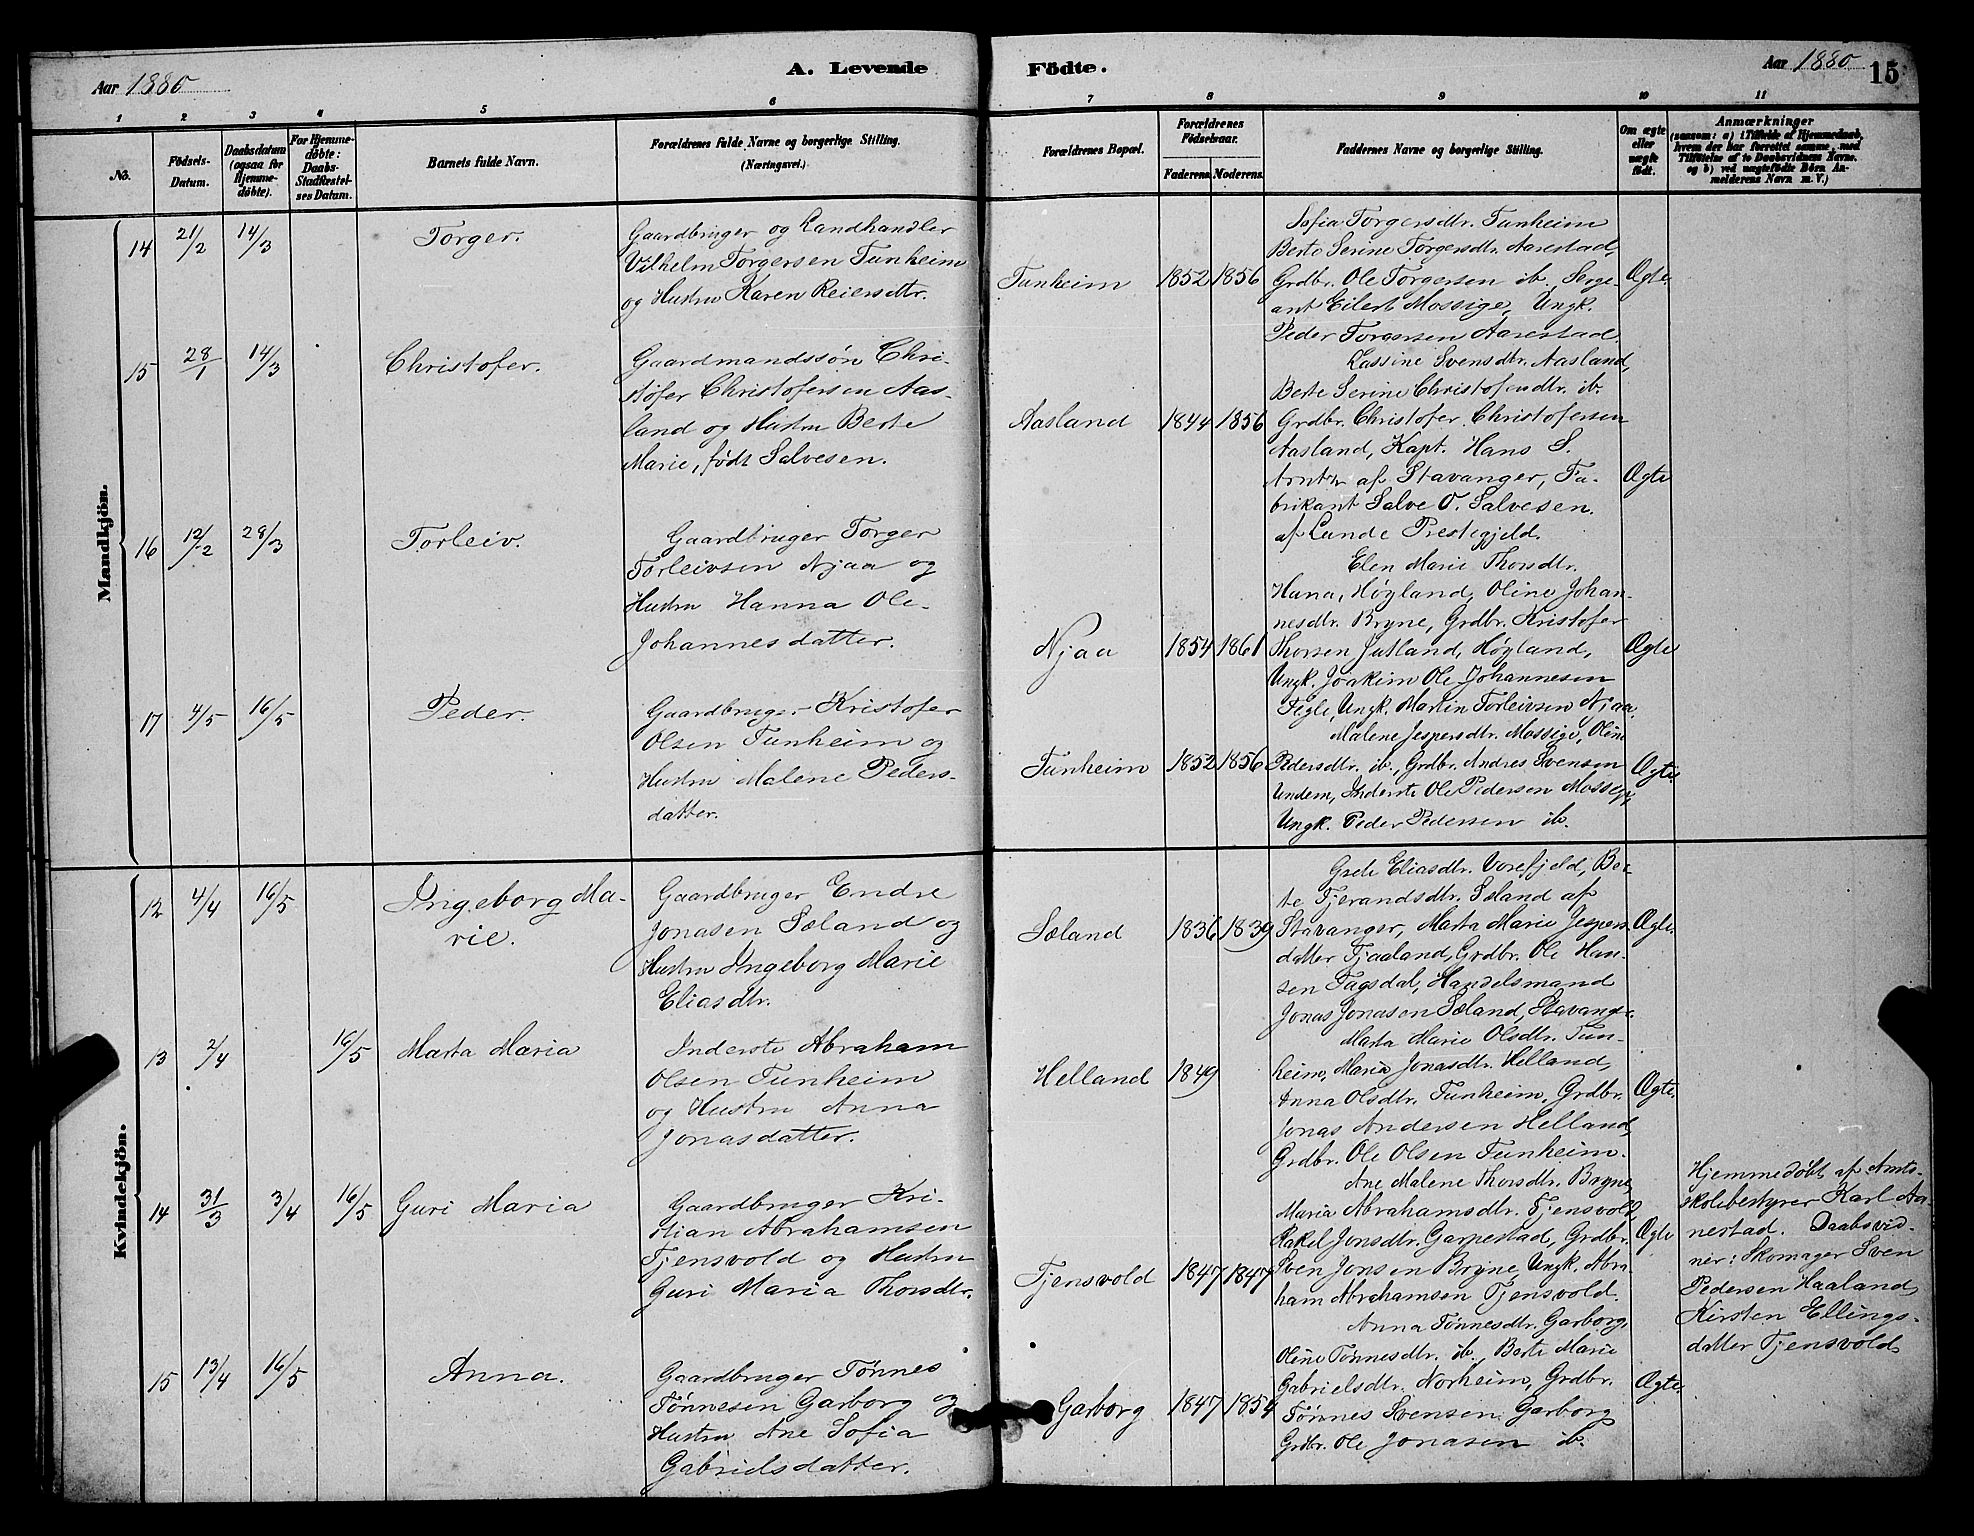 A. Levende Födte.
Aar 1880
Aar 1880
15
1 2 3 4 5 6 7 8 9 10 11
No.
Födsels-
Datum.
Daabsdatum
(ogsaa for
Hjemme-
döbte).
For Hjemme-
döbte:
Daabs-
Stadfæstel-
ses Datum.
Barnets fulde Navn.
Forældrenes fulde Navne og borgerlige Stilling.
(Næringsvei.)
Forældrenes Bopæl.
Forældrenes
Födselsaar.
Faderens. Moderens.
Faddernes Navne og borgerlige Stilling.
Om ægte
eller
uægte
födt.
Anmærkninger
(saasom: a) i Tilfælde af Hjemmedaab,
hvem der har forrettet samme, med
Tilföielse af to Daabsvidners Navne.
og b) ved uægtefödte Börn An-
melderens Navn m. V.)
Mandkjön.
14 21/2 14/3
Torger.
Gaardbruger og Landhandler
Vilhelm Torgersen Tunheim
og Hustru Karen Reiersdtr.
Tunheim 1852 1856
Sofia Torgersdtr. Tunheim
Berte Serine Torgersdtr. Aarestad,
Grdbr. Ole Torgersen ib. Serge-
ant Eilert Mossige, Ungk.
Peder Torgersen Aarestad.
Ægte.
15 28/1 14/3
Christofer.
Gaardmandssøn Chri-
stofer Christofersen Aas-
land og Hustru Berte
Marie, født Salvesen.
Aasland 1844 1856
Lassine Svensdtr. Aasland,
Berte Serine Christofersdtr. ib.
Grdbr. Christofer Christofersen
Aasland, Kapt. Hans S.
af Stavanger, Fa-
brikant Salve O. Salvesen.
af Lunde Prestegjeld.
Ægte
16 12/2 28/3
Torleiv.
Gaardbruger Torger
Torleivsen Njaa og
Hustru Hanna Ole-
Johannesdatter.
Njaa 1854 1861
Elen Marie Thorsdtr.
Hana, Høyland, Oline Johan-
nesdtr. Bryne, Grdbr. Kristofer
Thorsen Jutland, Høyland,
Ungk. Joakim Ole Johannesen
Tegle, Ungk. Martin Torleivsen Njaa.
Ægte
17 4/5 16/5
Peder.
Gaardbruger Kristofer
Olsen Tunheim og
Hustru Malene Peders-
datter.
Tunheim 1852 1856
Malene Jespersdtr. Mossige, Oline
Pedersdtr. ib., Grdbr. Andres Svensen
Undem, Inderste Ole Pedersen Mossige,
Ungk. Peder Pedersen ib.
Ægte.
Kvindekjön.
12 4/4 16/5
Ingeborg Ma-
rie.
Gaardbruger Endre
Jonasen Sæland og
Hustru Ingeborg Marie
Eliasdtr.
Sæland 1836 1839
Grete Eliasdtr. Varefjeld, Ber-
te Tjerandsdtr. Sæland af
Stavanger, Marta Marie Jespers-
datter Tjaaland, Grdbr. Ole Han-
sen Fagsdal, Handelsmand
Jonas Jonasen Sæland, Stavanger
Ægte.
13 2/4 16/5
Marta Maria
Inderste Abraham
Olsen Tunheim
og Hustru Anna
Jonasdatter.
Helland 1849
Marta Marie Olsdtr. Tun-
heim, Maria Jonasdtr. Helland,
Anna Olsdtr. Tunheim, Grdbr.
Jonas Andersen Helland,
Grdbr. Ole Olsen Tunheim.
Ægte.
14 31/3 3/4 16/5
Guri Maria
Gaardbruger Kri-
stian Abrahamsen
Tjensvold og Hustru
Guri Maria Thorsdtr.
Tjensvold 1847 1847
Ane Malene Thorsdtr. Bryne,
Maria Abrahamsdtr. Tjensvold,
Rakel Jonsdtr. Garpestad, Grdbr.
Sven Jonsen Bryne, Ungk. Abra-
ham Abrahamsen Tjensvold.
Ægte
Hjemmedøbt af Amts-
skolebestyrer Karl Aa-
nestad. Daabsvid-
ner: Skomager Sven
Pedersen Haaland,
Kirsten Ellings-
datter Tjensvold
15 13/4 16/5
Anna.
Gaardbruger Tønnes
Tønnesen Garborg og
Hustru Ane Sofia
Gabrielsdatter.
Garborg 1847 1854
Anna Tønnesdtr. Garborg,
Oline Tønnesdtr. ib., Berte Marie
Gabrielsdtr. Norheim, Grdbr.
Tønnes Svensen Garborg
Grdbr. Ole Jonasen ib.
Ægte.